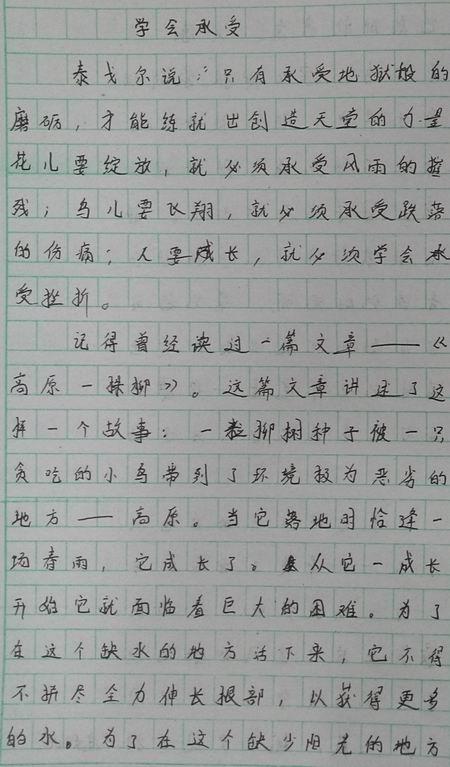 学会承受
泰戈尔说:"只有承受地狱般的
磨砺,才能练就出创造天堂的力量
花儿要绽放,就必须承受风雨的摧
残;鸟儿要飞翔,就必须承受跌落
的伤痛;人要成长,就必须学会承
受挫折。
记得曾经读过一篇文章——《
高原一棵柳》。这篇文章讲述了这
样一个故事:一粒柳树种子被一只
贪吃的小鸟带到了环境极为恶劣的
地方——高原。当它落地时恰逢一
场春雨,它成长了。从它一成长
开始它就面临着巨大的困难。为了
在这个缺水的地方活下来,它不得
不拼尽全力伸长根部,以获得更多
的水。为了在这个缺少阳光的地方